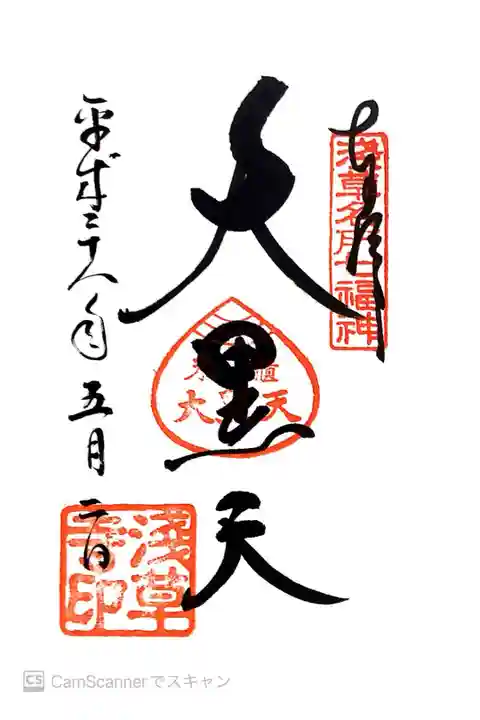 奉拝
浅草名所七福神
大黒天
米櫃
大黒天
平成三十年
五月二日
淺草
寺印
CS CamScannerでスキャン